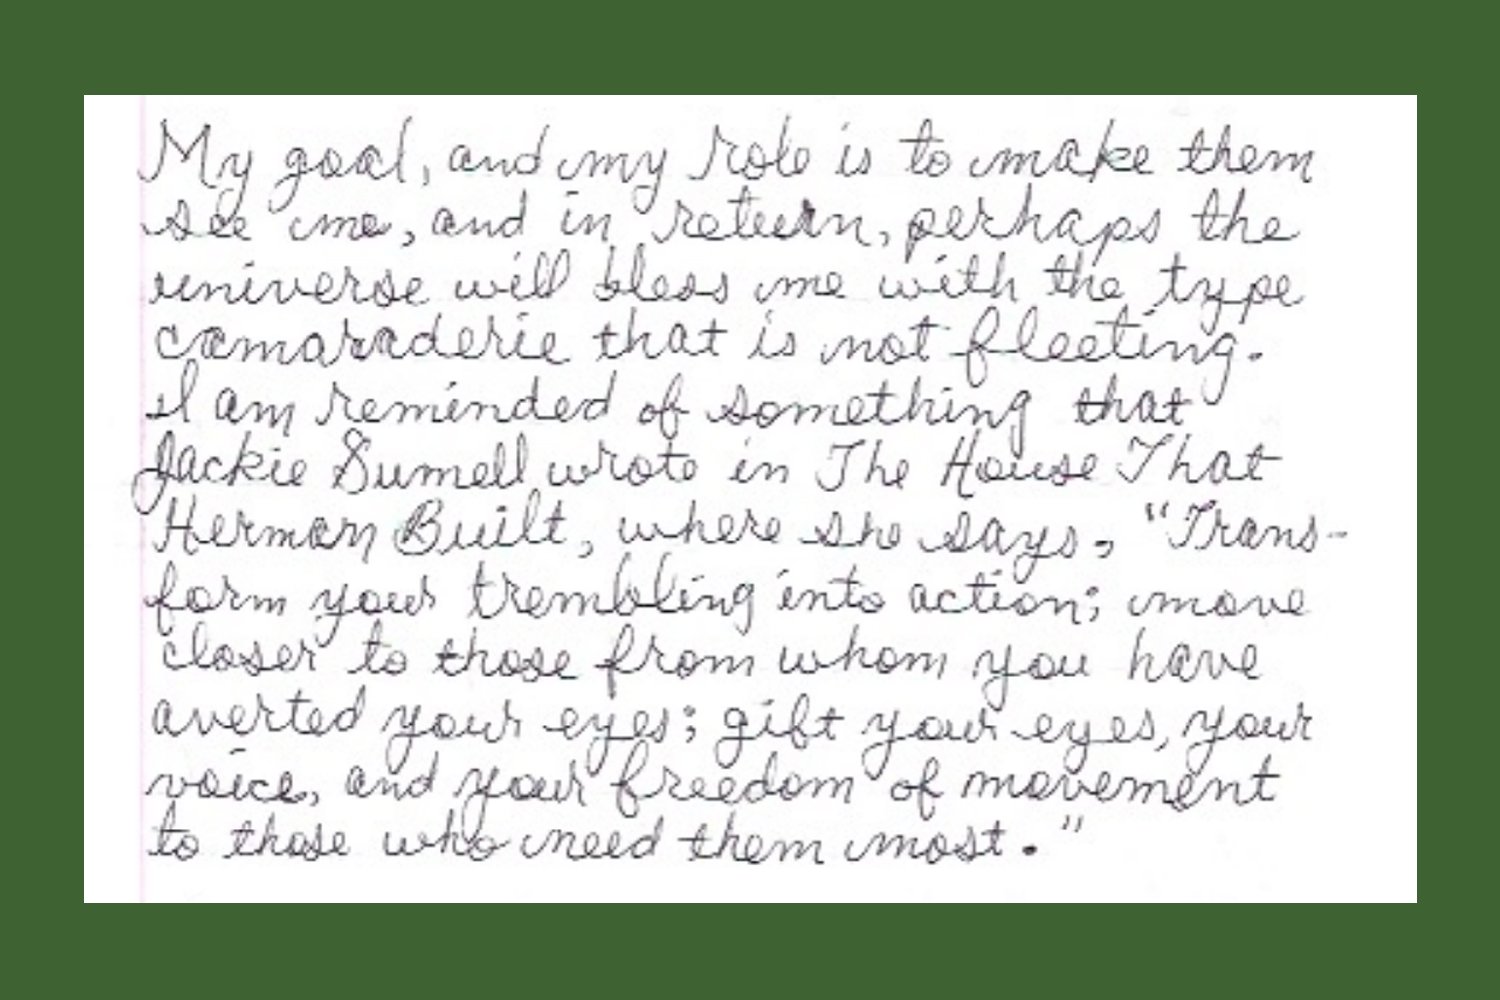 My goal, and my role is to make them
see me, and in return, perhaps the
universe will bless me with the type
camaraderie that is not fleeting.
I am reminded of something that
Jackie Sumell wrote in The House That
Herman Built, where she says, "Trans-
form your trembling into action; move
closer to those from whom you have
averted your eyes; gift your eyes, your
voice, and your freedom of movement
to those who need them most."